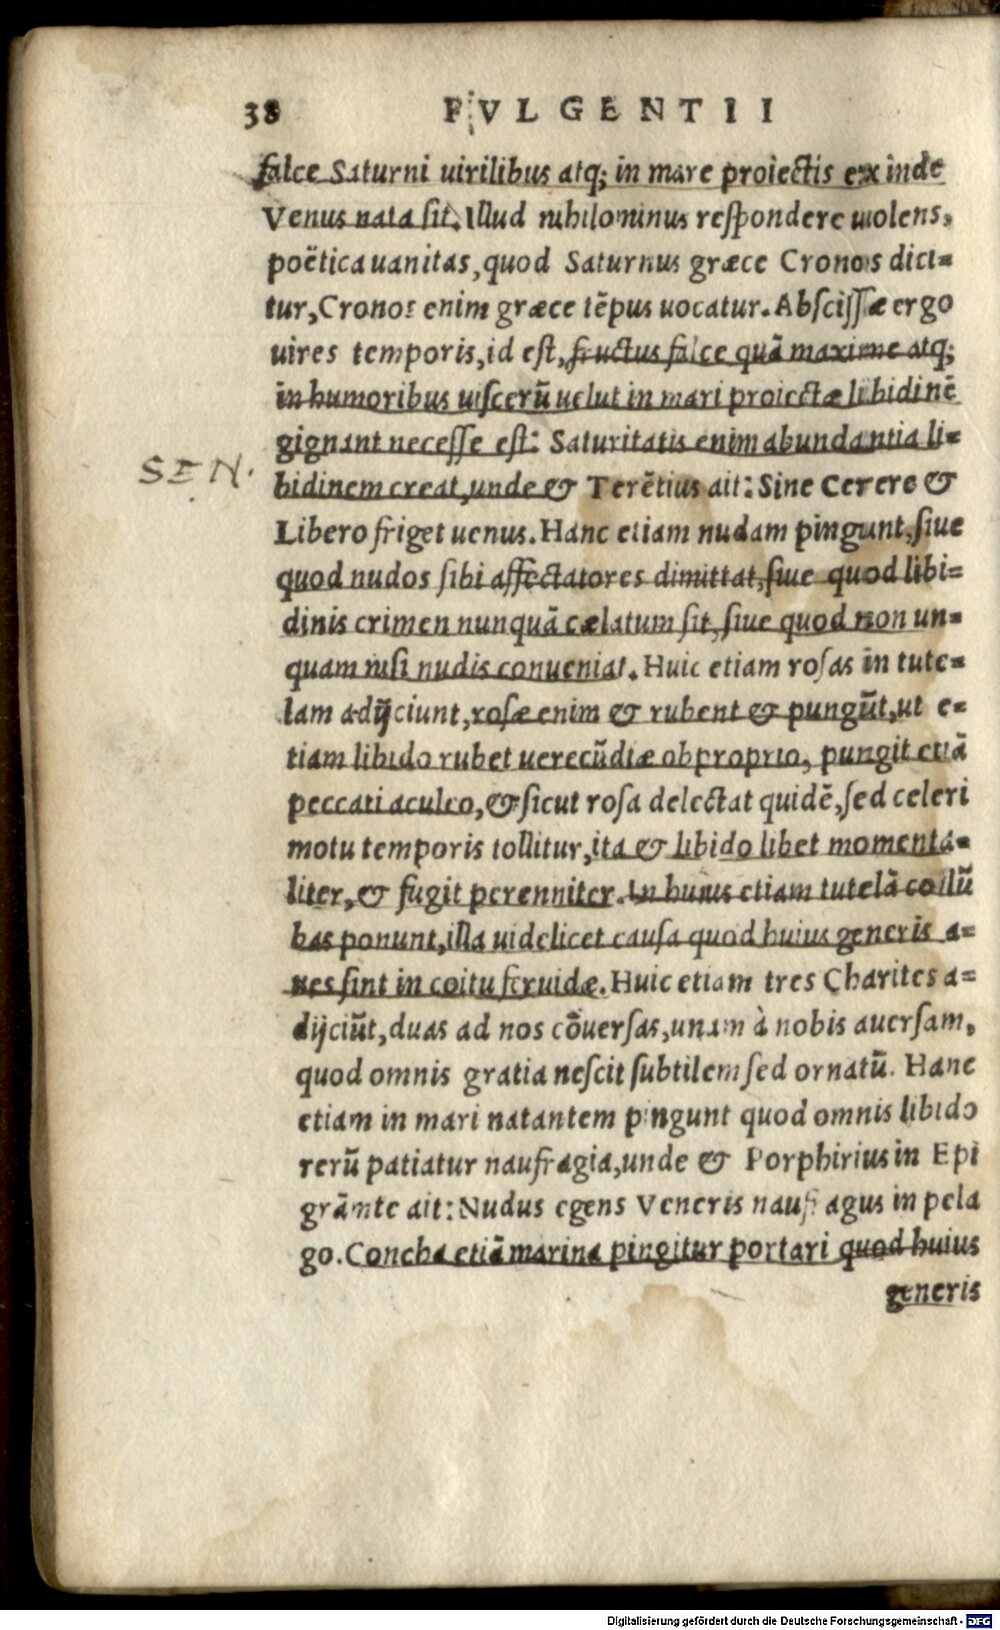 38 FVLGENTII
falce Saturni uirilibus atq; in mare proiectis exinde
Venus nata sit. Illud nihilominus respondere uolens,
poëtica uanitas, quod Saturnus græce Cronos dici=
tur, Cronos enim græce tēpus uocatur. Abscissæ ergo
uires temporis, id est, fructus falce quā maxime atq;
in humoribus uiscerū uelut in mari proiectæ libidinē
gignant necesse est: Saturitatis enim abundantia li=
SEN.
bidinem creat, unde & Terētius ait: Sine Cerere &
Libero friget uenus. Hanc etiam nudam pingunt, siue
quod nudos sibi affectatores dimittat, siue quod libi=
dinis crimen nunquā cælatum sit, siue quod non un=
quam nisi nudis conueniat. Huic etiam rosas in tute=
lam adijciunt, rosæ enim & rubent & pungūt, ut e=
tiam libido rubet uerecūdiæ obproprio, pungit etiā
peccati aculeo, & sicut rosa delectat quidē, sed celeri
motu temporis tollitur, ita & libido libet momenta=
liter, & fugit perenniter. In huius etiam tutelā colū
bas ponunt, illa uidelicet causa quod huius generis a=
ues sint in coitu feruidæ. Huic etiam tres Charites a=
dijciūt, duas ad nos cōuersas, unam à nobis auersam,
quod omnis gratia nescit subtilem sed ornatū. Hanc
etiam in mari natantem pingunt quod omnis libido
rerū patiatur naufragia, unde & Porphirius in Epi
grāmte ait: Nudus egens Veneris naufragus in pela
go. Concha etiā marina pingitur portari quod huius
generis
Digitalisierung gefördert durch die Deutsche Forschungsgemeinschaft - DFG